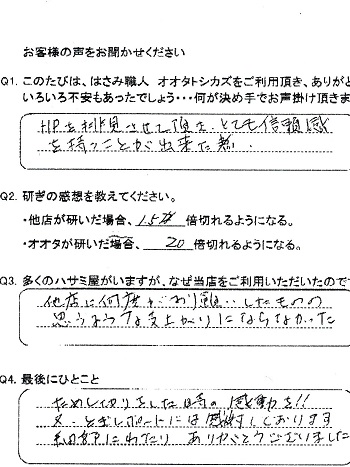 お客様の声をお聞かせください
Q1. このたびは、はさみ職人 オオタトシカズをご利用頂き、ありがと
いろいろ不安もあったでしょう・・・何が決め手でお声掛け頂きま
HPを拝見させて頂き、とても信頼感
を持つことが出来た為.
Q2. 研ぎの感想を教えてください。
・他店が研いだ場合、1.5 倍切れるようになる。
・オオタが研いだ場合、20 倍切れるようになる。
Q3. 多くのハサミ屋がいますが、なぜ当店をご利用いただいたので
他店に何度か お願いしたものの
思うような仕上がりにならなかった
Q4. 最後にひとこと
ためし切りをした時の感動を!!
レポートには感謝しております
ありがとうございました